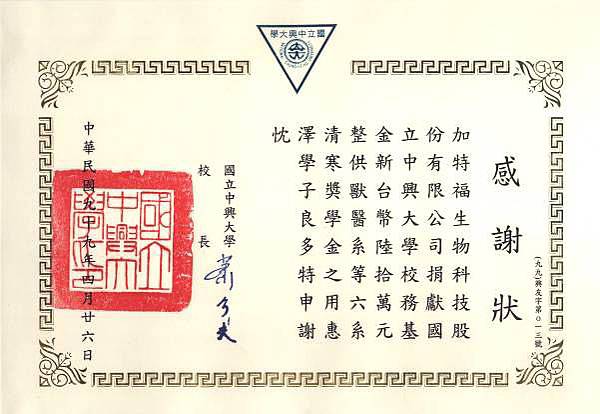 國立中興大學
感謝狀
(九九)興友字第0一三號
加特福生物科技股
份有限公司捐獻國
立中興大學校務基
金新台幣陸拾萬元
整供獸醫系等六系
清寒獎學金之用惠
澤學子良多特申謝
忱
國立中興大學
校長
中華民國九十九年四月廿六日